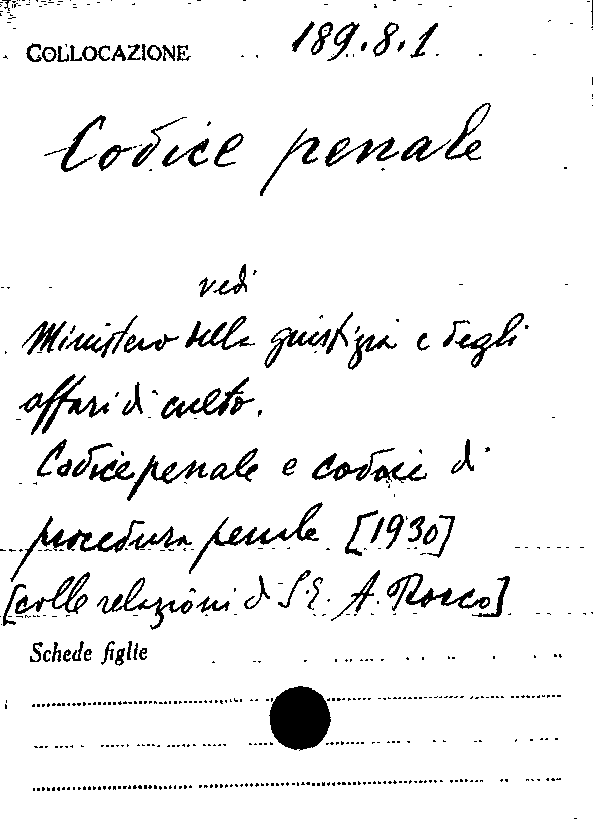 COLLOCAZIONE 189.8.1
Codice penale
vedi
Ministero della giustizia e degli
affari di culto.
Codice penale e codice di
procedura penale [1930]
[colle relazioni di S.E. A. Rocco]
Schede figlie